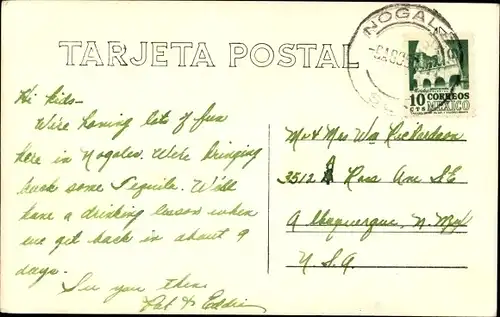 TARJETA POSTAL
NOGALES
10 CORREOS
CTS MEXICO
Hi kids -
We're having lots of fun
here in Nogales. We're bringing
back some Tequila. We'll
have a drinking lesson when
we get back in about 9
days.
See you then.
Pat & Eddie
Mr & Mrs Wm Richardson
3512 Ross Ave SE
Albuquerque, N. Mex
U.S.A.